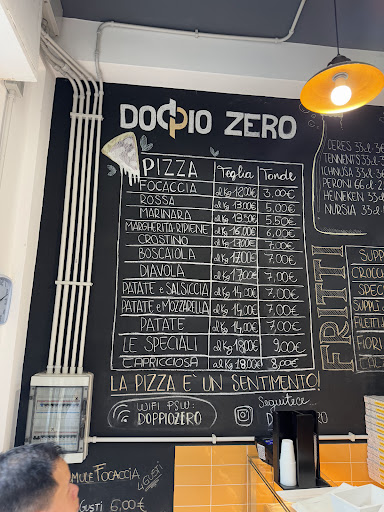 DOPPIO ZERO
PIZZA Teglia Tonde
FOCACCIA al Kg 12,00€ 3,00€
ROSSA al Kg 13,00€ 5,00€
MARINARA al Kg 13,50€ 5,50€
MARGHERITA RIPIENE al Kg 16,00€ 6,00€
CROSTINO al Kg 17,00€ 7,00€
BOSCAIOLA al Kg 17,00€ 7,00€
DIAVOLA al Kg 17,00€ 7,00€
PATATE e SALSICCIA al Kg 14,00€ 7,00€
PATATE e MOZZARELLA al Kg 14,00€ 7,00€
PATATE al Kg 14,00€ 7,00€
LE SPECIALI al Kg 18,00€ 9,00€
CAPRICCIOSA al Kg 18,00€ 8,00€
LA PIZZA E' UN SENTIMENTO!
WIFI PSW:
DOPPIOZERO
Seguitece...
CERES 33cl
TENNENTS 33cl
ICHNUSA 33cl
PERONI 66cl
HEINEKEN 33cl
NURSIA 33cl
FRITTI
SUPP
CROCC
SPEC
SUPPLI
FILETT
FIORI
CAL
FOCACCIA
4 GUSTI
GUSTI 6,00€